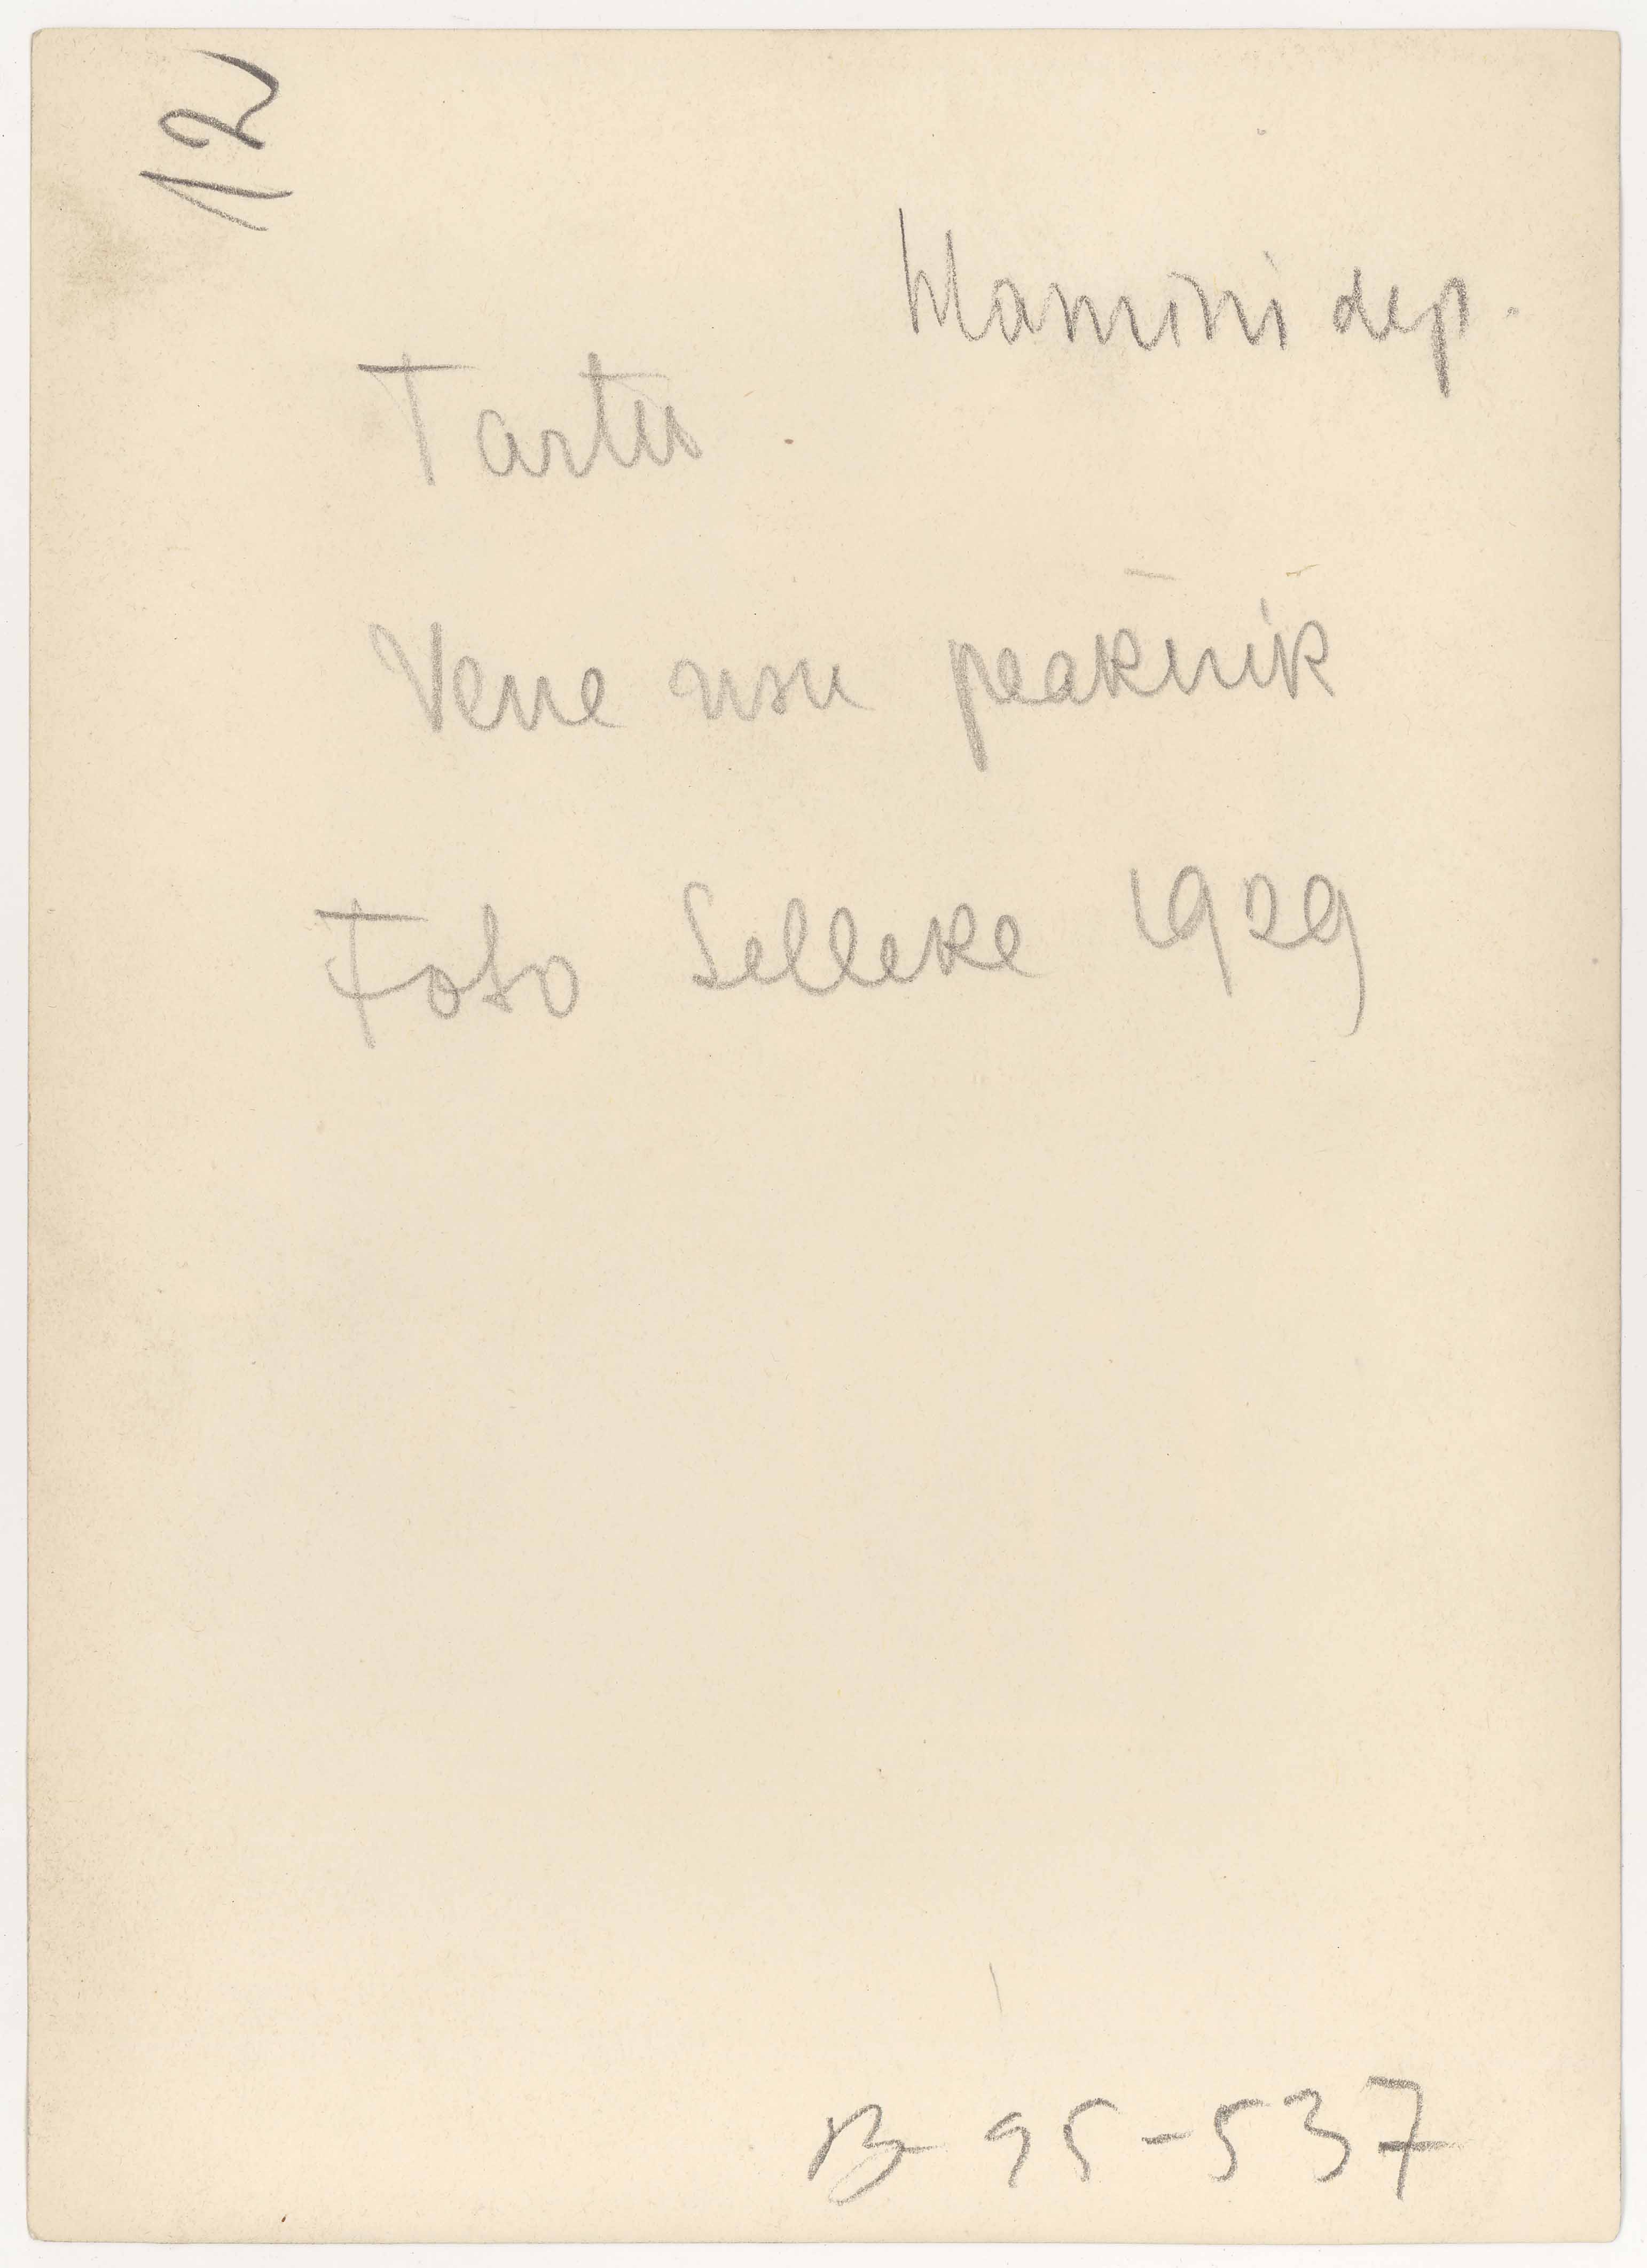 12
dep.
Tartu
Vene usu peakirik
Foto Selleke 1929
B-95-537